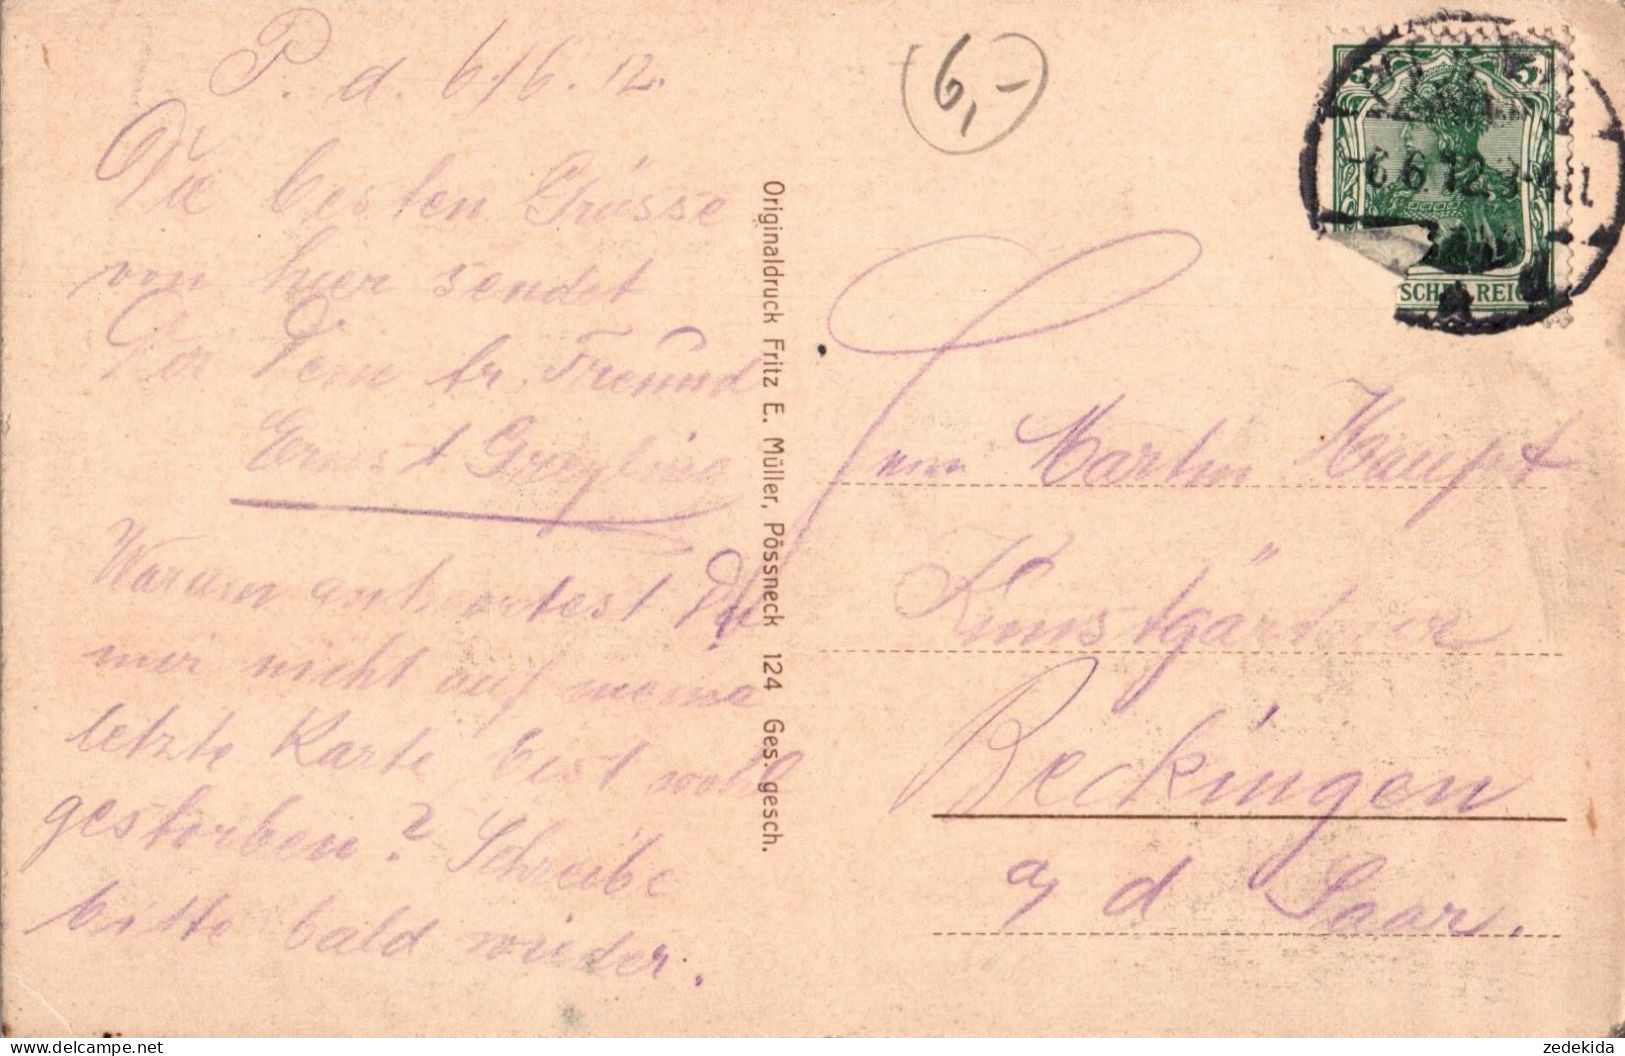 P. d. 6/6. 12.
Die besten Grüsse
von hier sendet
Dir Dein tr. Freund
Ernst
Warum antwortest Du
mir nicht auf meine
letzte Karte, bist wohl
gestorben? Schreibe
bitte bald wieder.
Originaldruck Fritz E. Müller, Pössneck 124 Ges. gesch.
6,-
5
-6.6.12.3-4N.
SCHES REICH
Martin Haupt
Kunstgärtner
Beckingen
a/d Saar.
zedekida